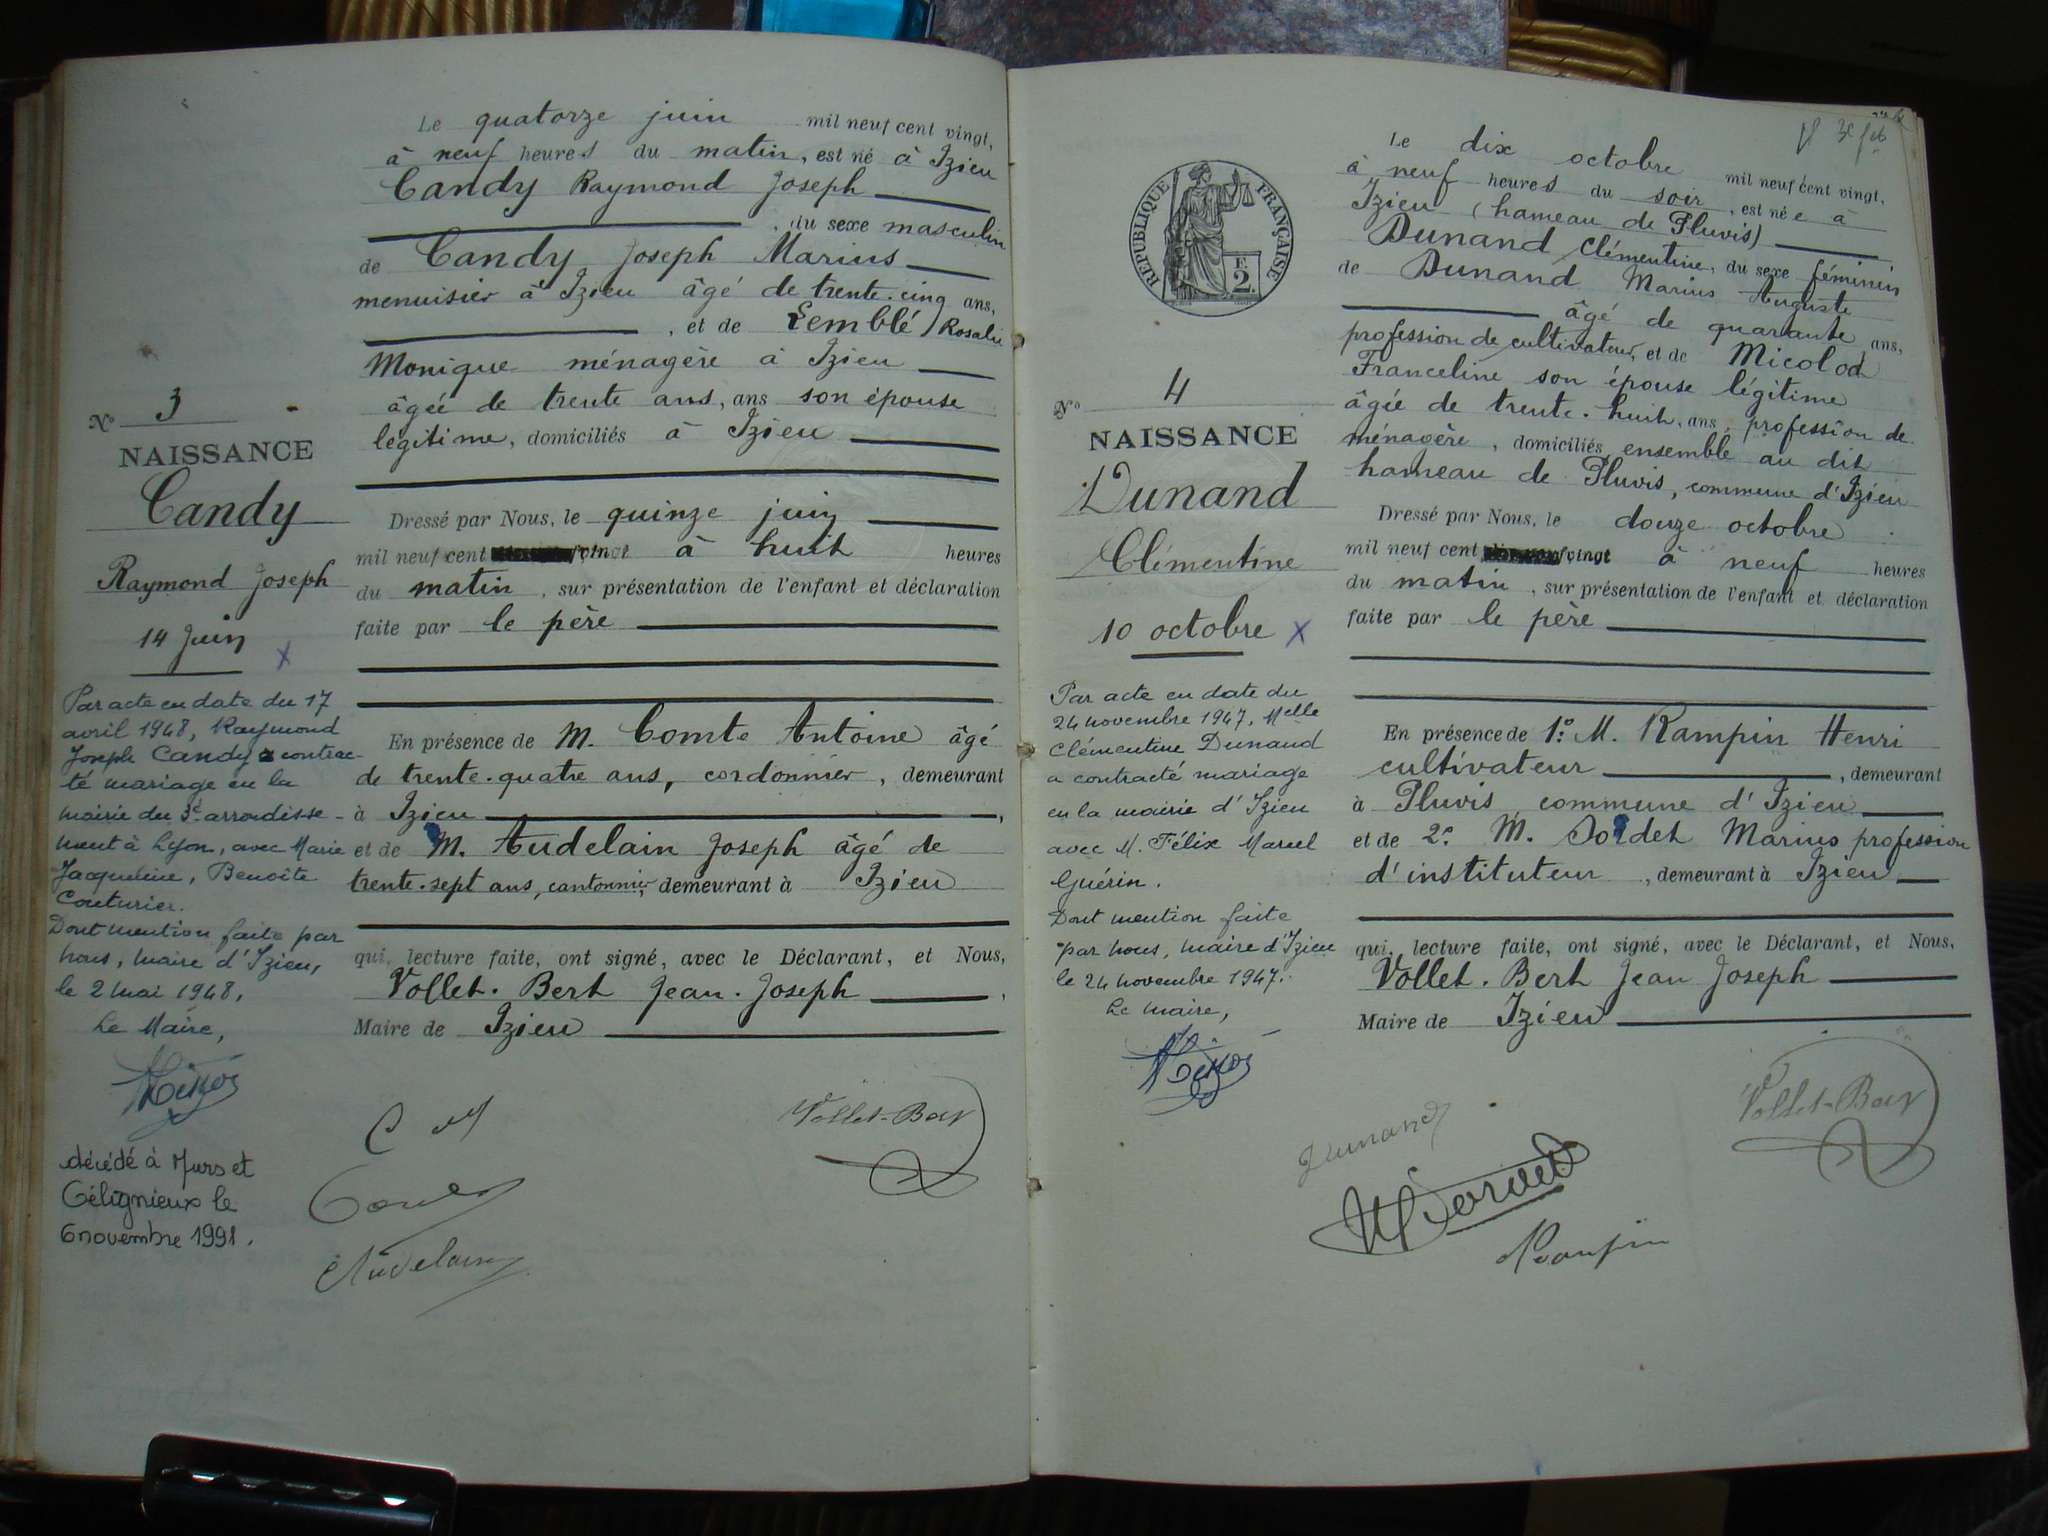 Le quatorze juin mil neuf cent vingt,
à neuf heures du matin, est né à Izieu
Candy Raymond Joseph
, du sexe masculin
de Candy Joseph Marius
menuisier à Izieu âgé de trente-cinq ans,
, et de Semblé Rosalie
Monique ménagère à Izieu
âgée de trente ans, ans son épouse
légitime, domiciliés à Izieu
Dressé par Nous, le quinze juin
mil neuf cent vingt à huit heures
du matin, sur présentation de l'enfant et déclaration
faite par le père
En présence de M. Comte Antoine âgé
de trente-quatre ans, cordonnier, demeurant
à Izieu,
et de M. Audelain Joseph âgé de
trente-sept ans, cantonnier, demeurant à Izieu
qui, lecture faite, ont signé, avec le Déclarant, et Nous,
Vollet-Bert Jean-Joseph,
Maire de Izieu
Vollet-Bert
Audelain
N° 3
NAISSANCE
Candy
Raymond Joseph
14 Juin
X
Par acte en date du 17
avril 1948, Raymond
Joseph Candy a contrac-
té mariage en la
mairie du 3e arrondisse-
ment à Lyon, avec Marie
Jacqueline, Benoîte
Couturier.
Dont mention faite par
nous, maire d'Izieu,
le 2 mai 1948,
Le Maire,
décédé à Murs et
Gélignieux le
6 novembre 1991.
RÉPUBLIQUE FRANÇAISE
F.
2.
N° 4
NAISSANCE
Dunand
Clémentine
10 octobre X
Par acte en date du
24 novembre 1947, Melle
Clémentine Dunand
a contracté mariage
en la mairie d'Izieu
avec M. Félix Marcel
Guérin.
Dont mention faite
par nous, maire d'Izieu
le 24 novembre 1947.
Le maire,
Le dix octobre mil neuf cent vingt,
à neuf heures du soir, est née à
Izieu (hameau de Pluvis)
Dunand Clémentine, du sexe féminin
de Dunand Marius Auguste
âgé de quarante ans,
profession de cultivateur, et de Micolod
Franceline son épouse légitime
âgée de trente-huit, ans, profession de
ménagère, domiciliés ensemble au dit
hameau de Pluvis, commune d'Izieu
Dressé par Nous, le douze octobre
mil neuf cent vingt à neuf heures
du matin, sur présentation de l'enfant et déclaration
faite par le père
En présence de 1° M. Rampin Henri
cultivateur, demeurant
à Pluvis commune d'Izieu
et de 2° M. Dordet Marius profession
d'instituteur, demeurant à Izieu
qui, lecture faite, ont signé, avec le Déclarant, et Nous,
Vollet-Bert Jean Joseph
Maire de Izieu
Vollet-Bert
Dunand
Rampin